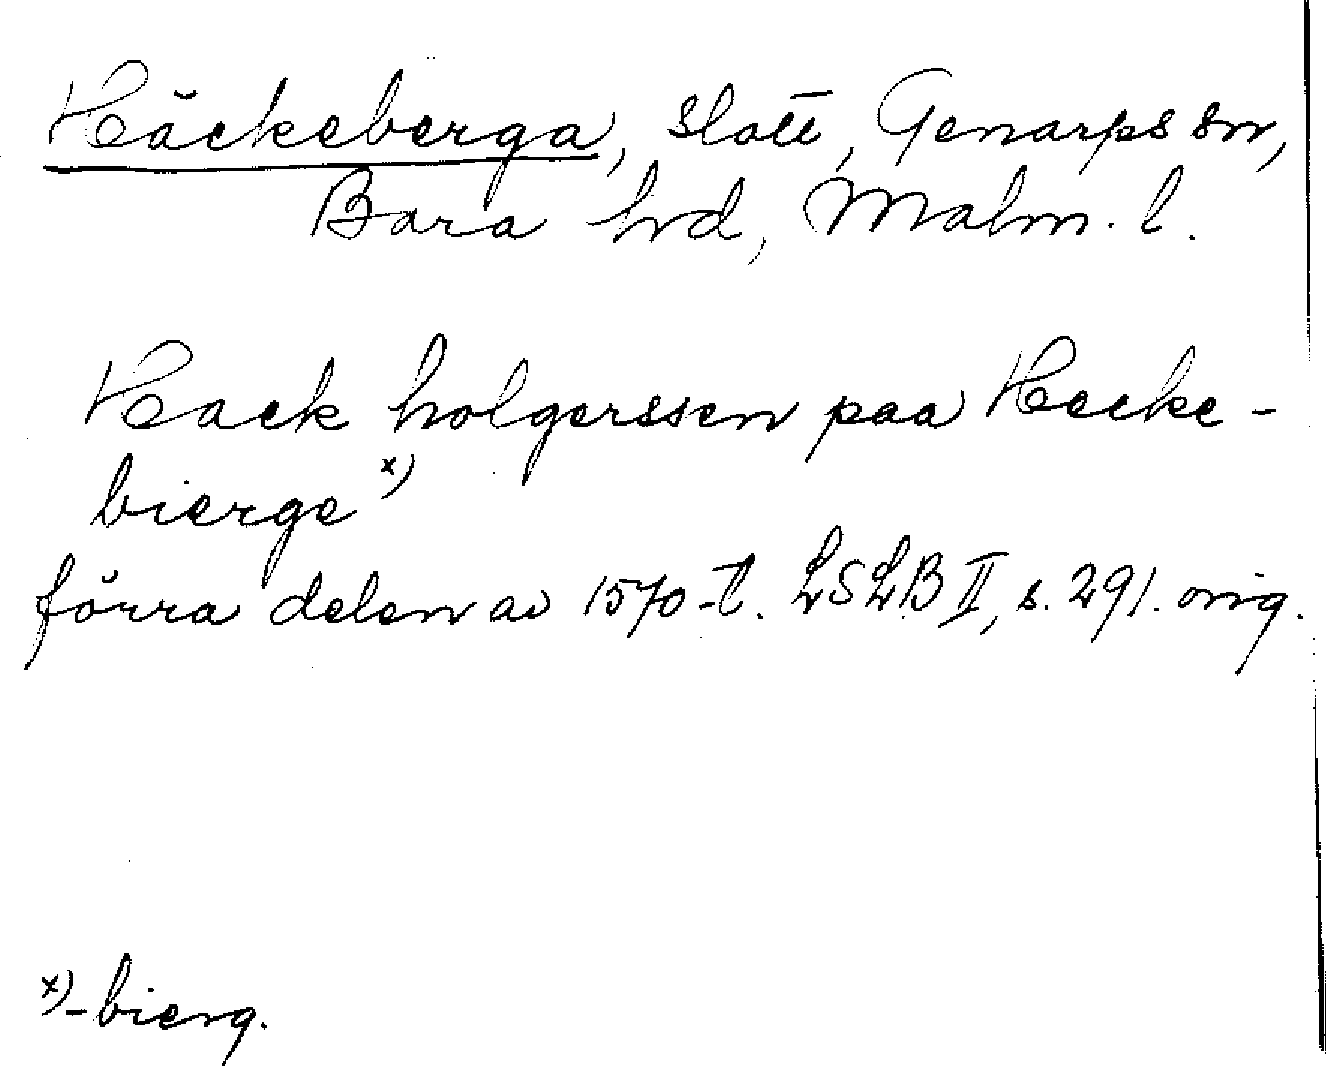 Häckeberga, slott, Genarps sn,
Bara hrd, Malm. l.
Hack holgerssen paa Hecke-
bierge x)
förra delen av 1570-t. LSLB II, s. 291. orig.
x) -bierg.